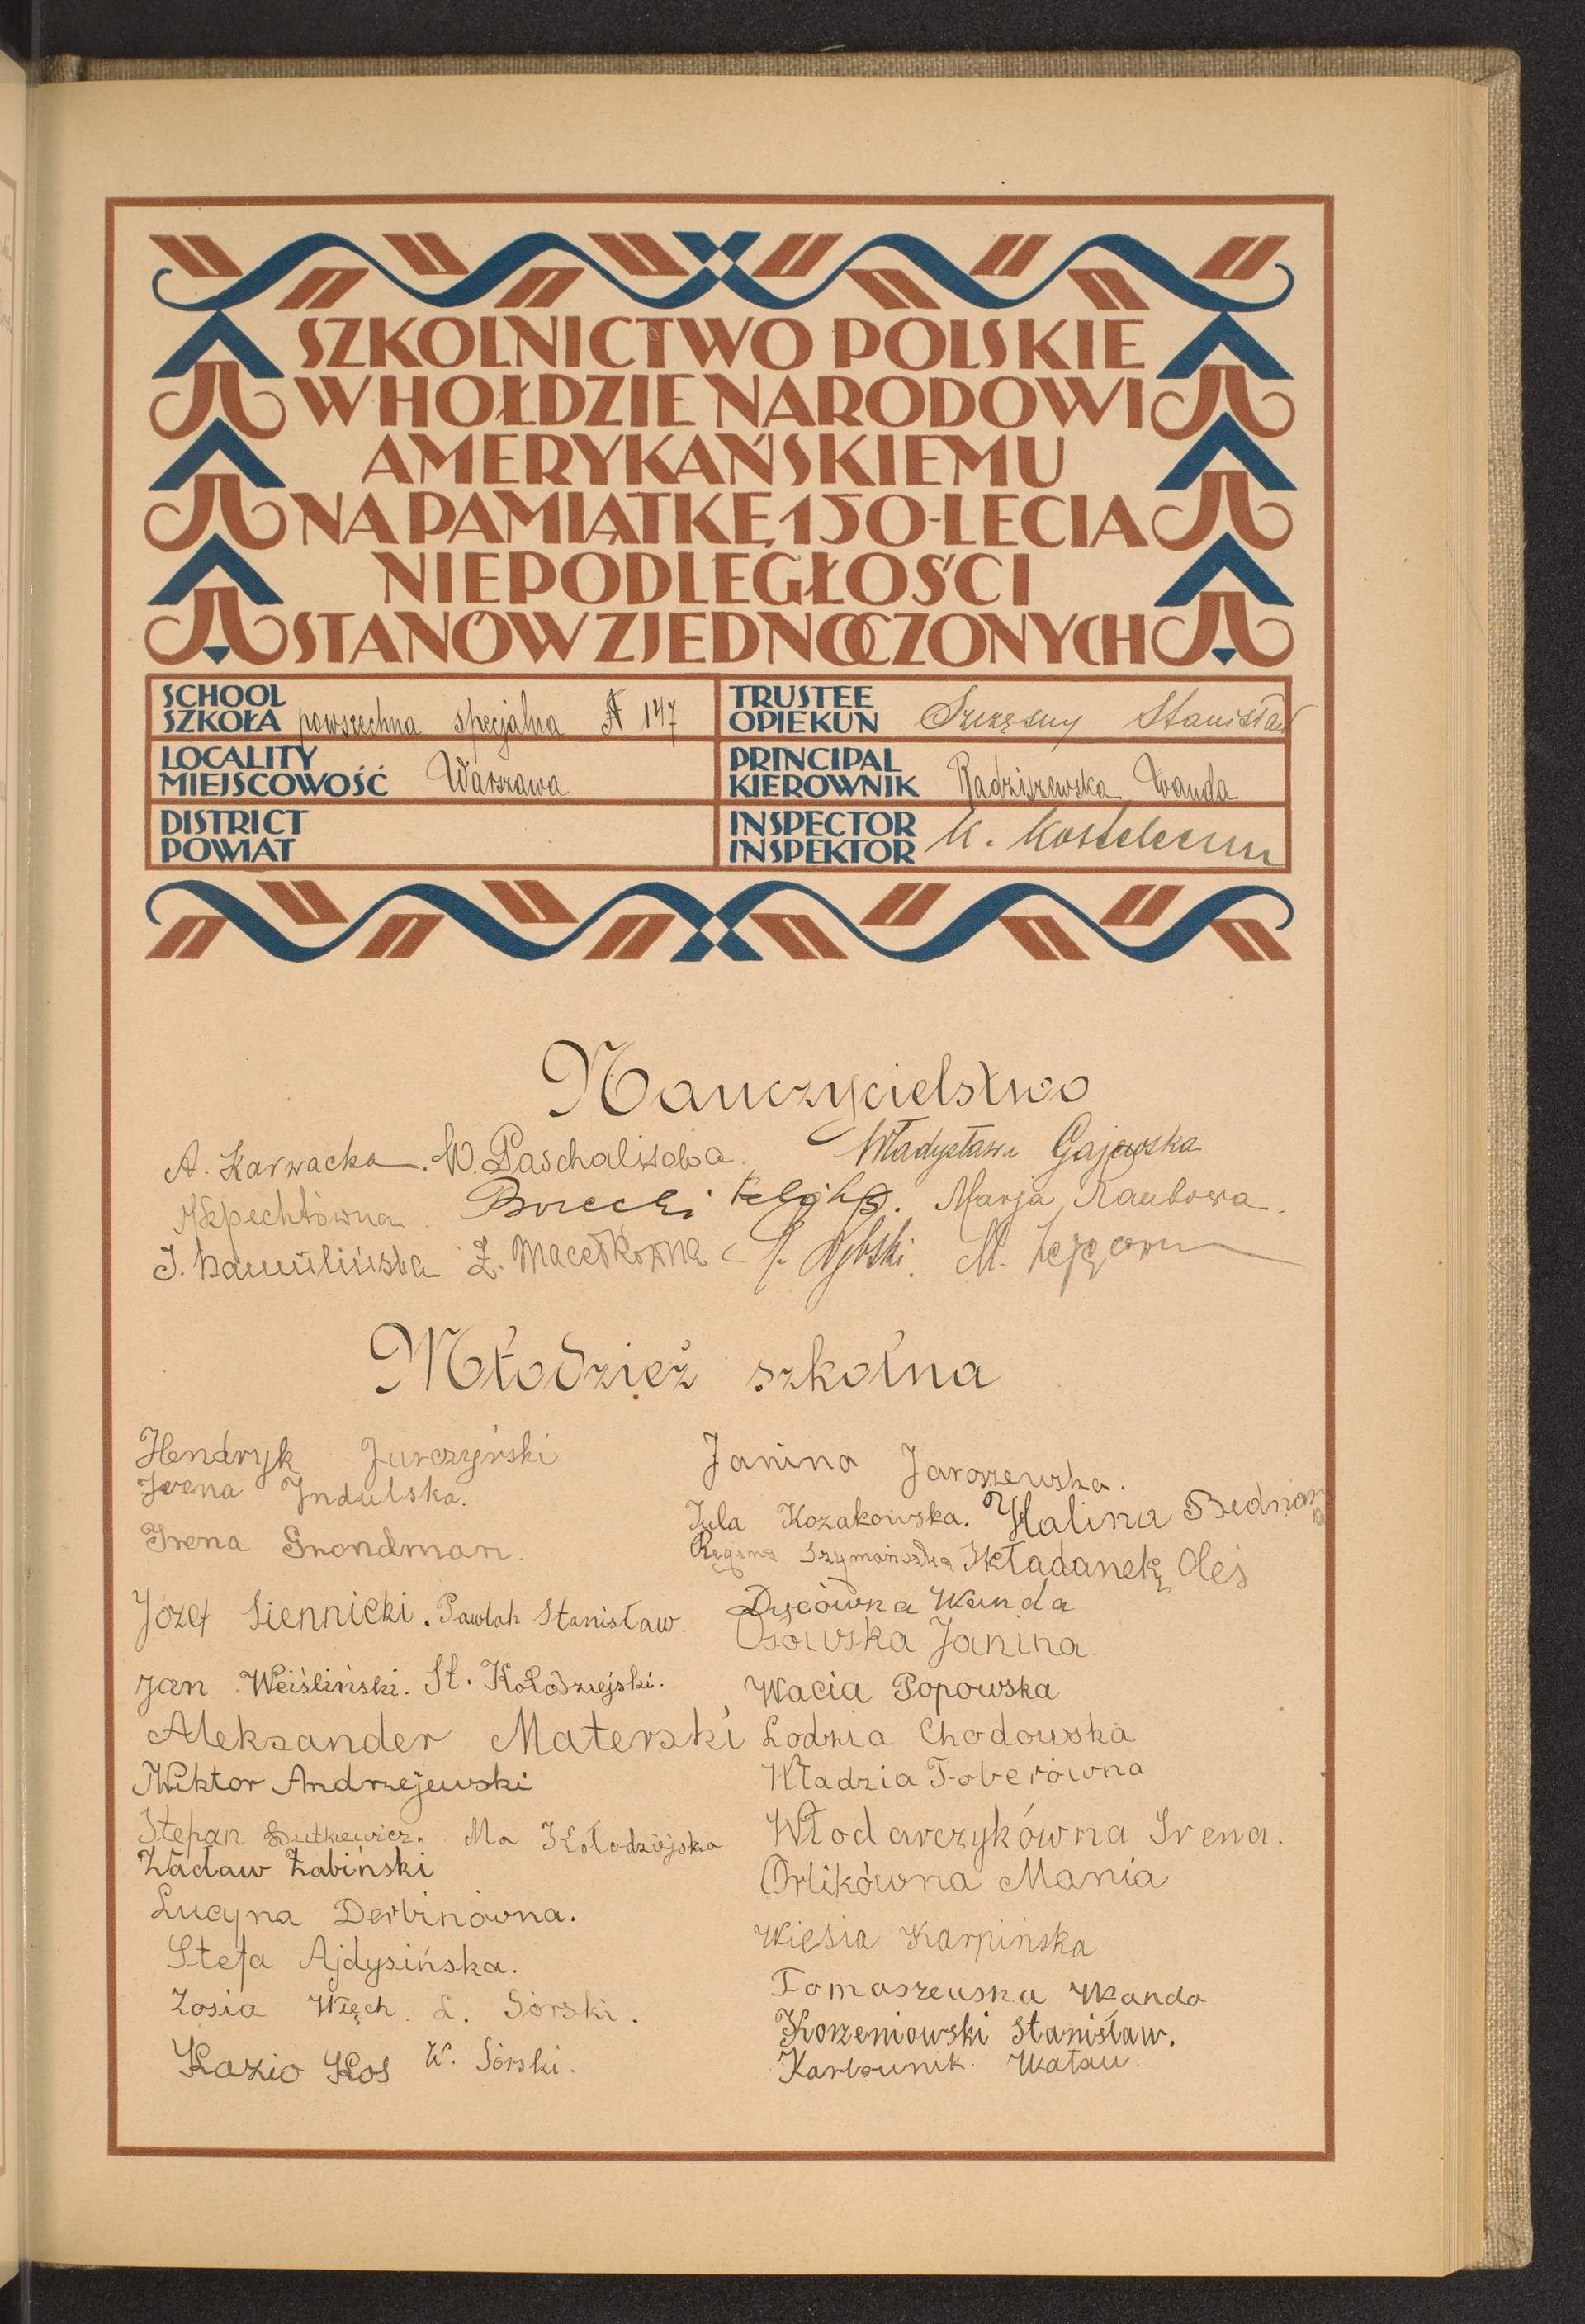 SZKOLNICTWO POLSKIE
W HOŁDZIE NARODOWI
AMERYKAŃSKIEMU
NA PAMIĄTKĘ 150-LECIA
NIEPODLEGŁOŚCI
STANÓW ZJEDNOCZONYCH
SCHOOL
SZKOŁA powszechna specjalna N 147
TRUSTEE
OPIEKUN Szczęsny Stanisław
LOCALITY
MIEJSCOWOŚĆ Warszawa
PRINCIPAL
KIEROWNIK Radziszewska Wanda
DISTRICT
POWIAT
INSPECTOR
INSPEKTOR K.
Nauczycielstwo
A. Karwacka. W. Paschalisowa. Władysława Gajewska
Borecki Marja Raubowa.
J. Z. Macełkówna M.
Młodzież szkolna
Hendryk Jurczyński
Irena Indulska.
Irena Grondman.
Józef Siennicki. Pawlak Stanisław.
Jan Weiśliński. St. Kołodziejski.
Aleksander Materski
Wiktor Andrzejewski
Stefan Dutkiewicz. Ma Kołodziejska
Wacław Żabiński
Lucyna Derbinówna.
Stefa Ajdysińska.
Zosia Więch. L. Sórski.
Kazio Kos W. Sórski.
Janina Jaroszewska.
Jula Kozakowska. Halina Bednarska
Regina Szymańska Składanek Oleś
Dycówna Wanda
Osówska Janina.
Wacia Popowska
Lodzia Chodowska
Władzia Foberówna
Włodarczykówna Irena.
Orlikówna Mania
Wiesia Karpińska
Tomaszewska Wanda
Korzeniowski Stanisław.
Karbownik. Wacław.